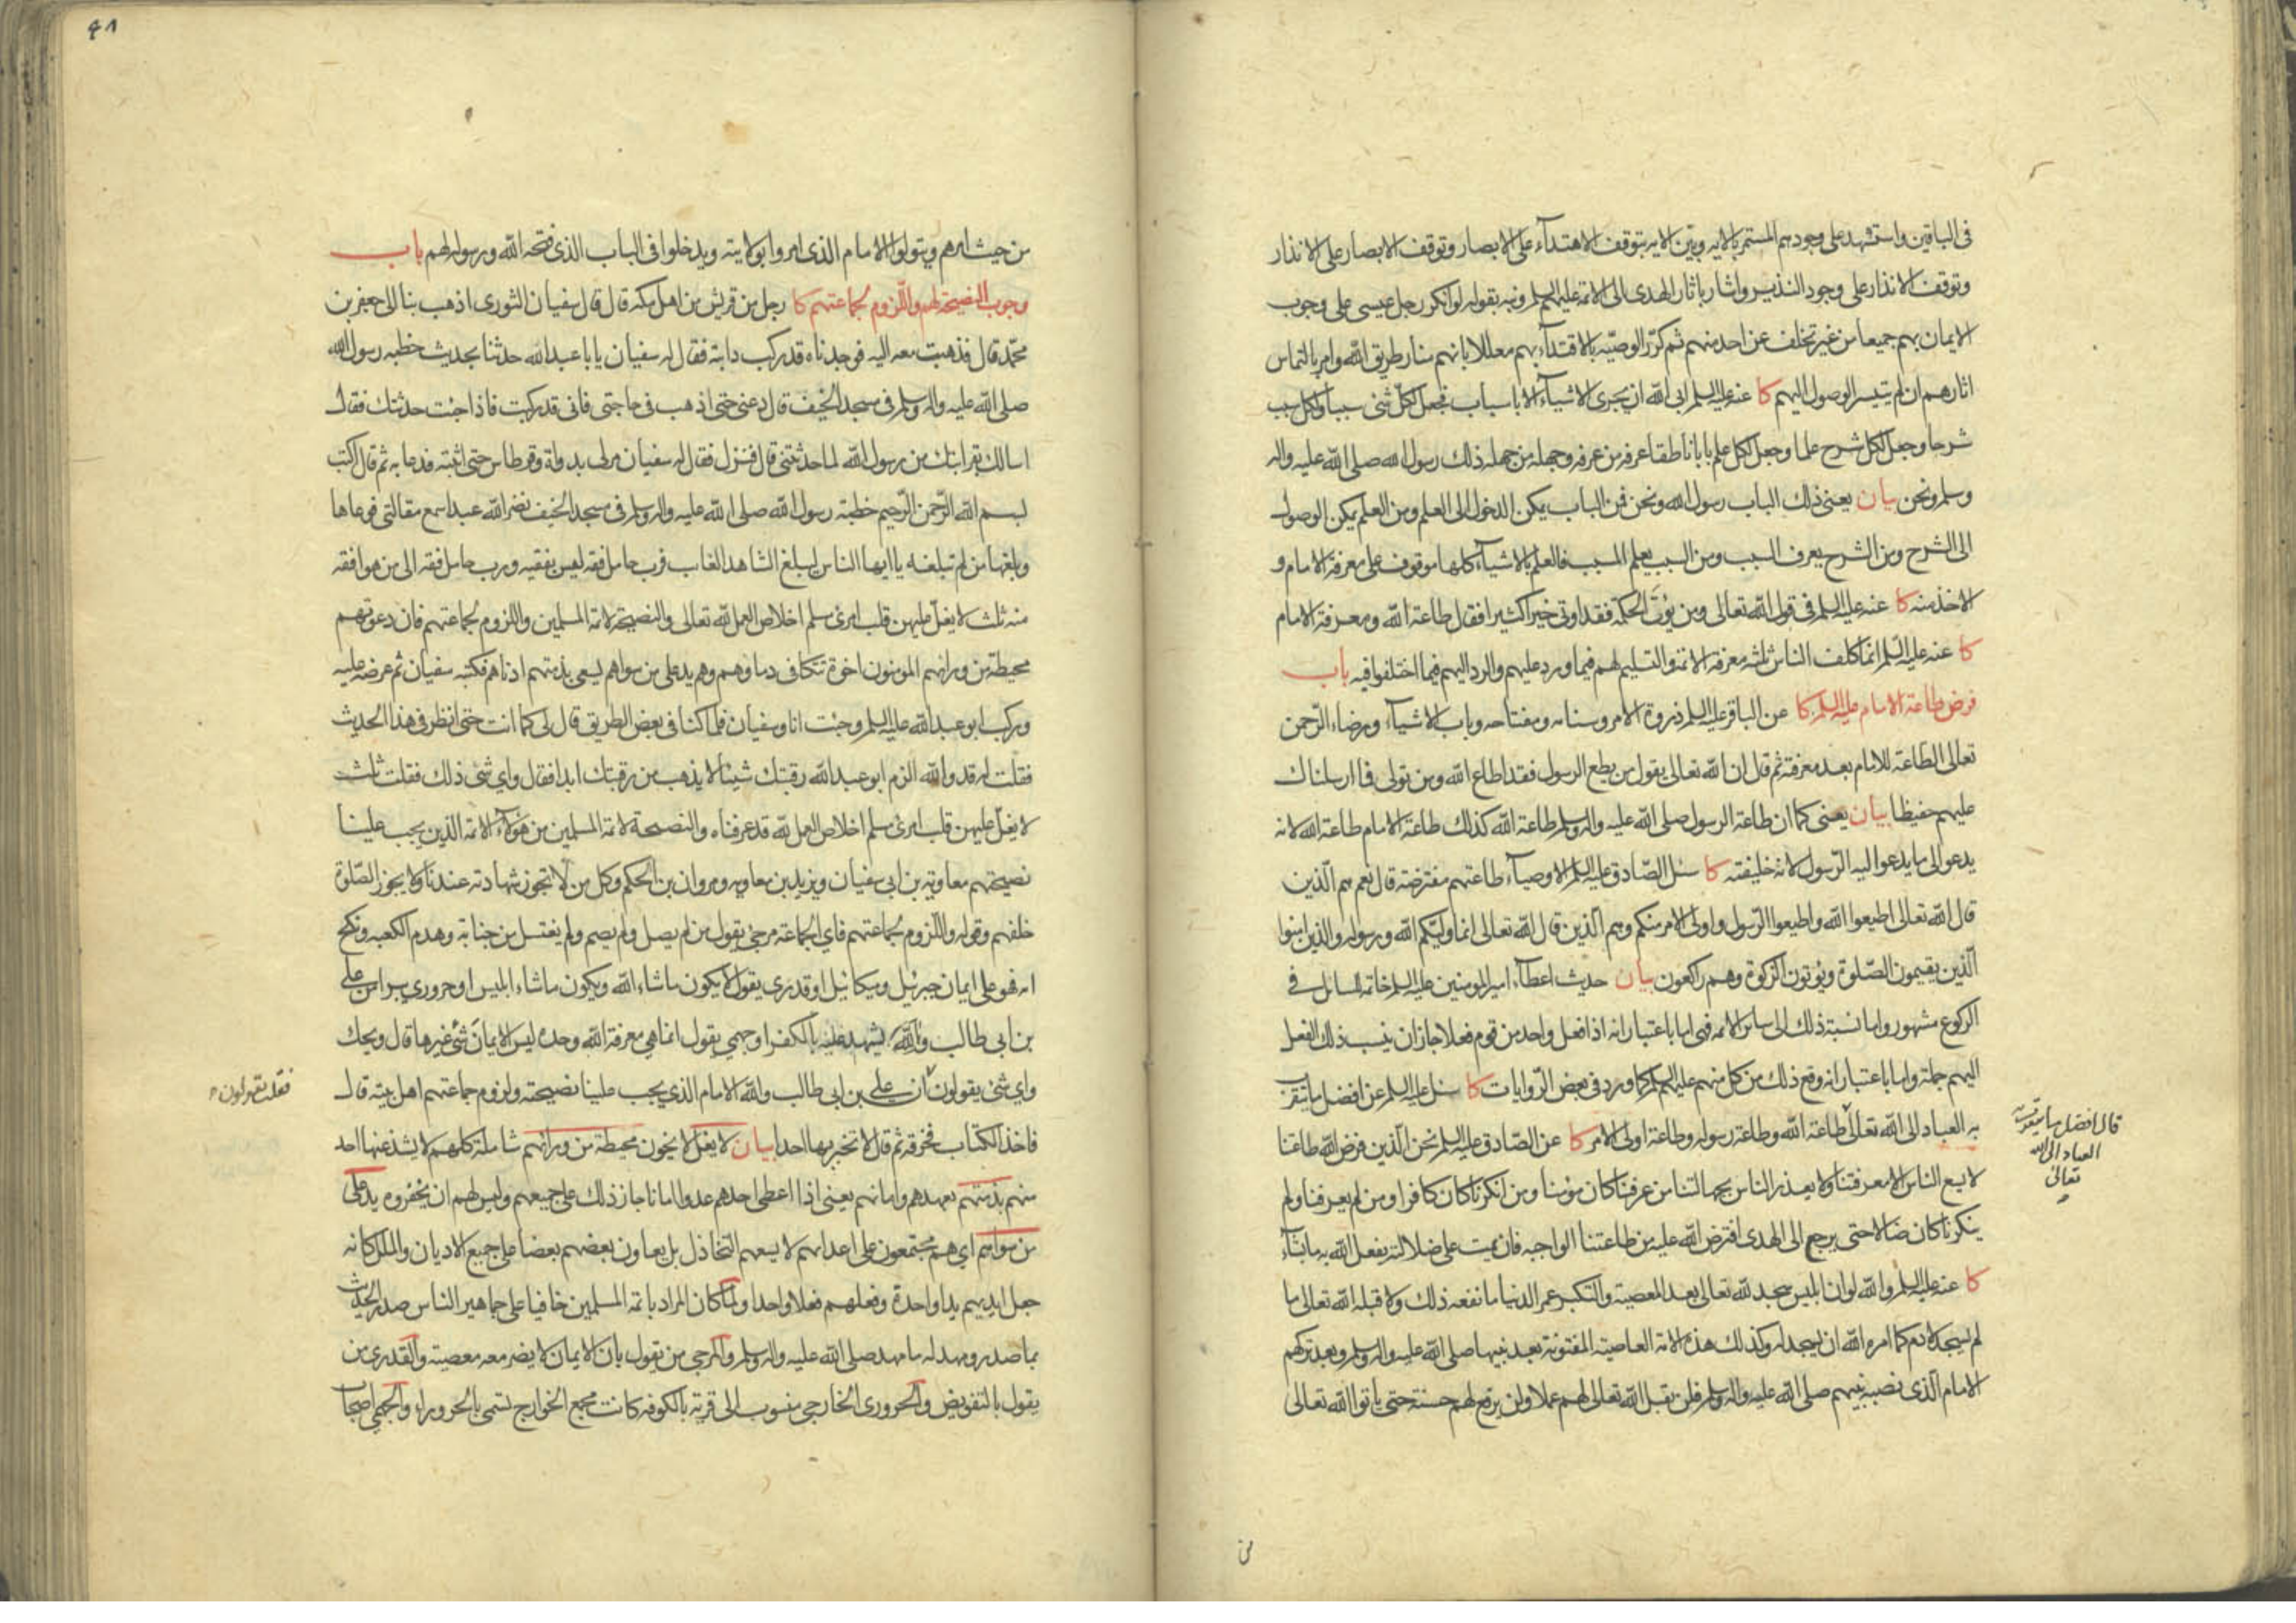 فى الباقين واستشهد على وجودهم المستمر بالايه وبتين الايه بتوقف الاهتدآء على الابصار وتوقف الابصار على الانذار
وتوقف الانذار على وجود النذير واشار باثار الهدى الى الائمة عليهم السلم ونبه بقوله لو انكر رجل عيسى على وجوب
الايمان بهم جميعا من غير تخلف عن احد منهم ثم كرّر الوصيّه بالاقتدآء بهم معللا بانهم منار طريق الله وامر بالتماس
اثارهم ان لم يتيسر الوصول اليهم كا عنه عليه السلم ابى الله ان يجرى الاشيآء الا باسباب فجعل لكلّ شئ سببا ولكل سبب
شرحا وجعل لكل شرح علما وجعل لكل علم بابا ناطقا عرفه من عرفه وجهله من جهله ذلك رسول الله صلى الله عليه واله
وسلم ونحن بيان يعنى ذلك الباب رسول الله ونحن فمن الباب يمكن الدخول الى العلم ومن العلم يمكن الوصول
الى الشرح ومن الشرح يعرف السبب ومن السبب يعلم المسبب فالعلم بالاشيآء كلها موقوف على معرفة الامام و
الاخذ منه كا عنه عليه السلم فى قول الله تعالى ومن يؤتَ الحكمة فقد اوتى خيرا كثيرا فقال طاعة الله ومعرفة الامام
كا عنه عليه السلم انما كلف الناس ثلثه معرفة الائمة والتسليم لهم فيما ورد عليهم والرد اليهم فيما اختلفوا فيه باب
فرض طاعة الامام عليه السلم كا عن الباقر عليه السلم ذروة الامر وسنامه ومفتاحه وباب الاشيآء ورضاء الرّحمن
تعالى الطاعة للامام بعد معرفته ثم قال ان الله تعالى يقول من يطع الرسول فقد اطاع الله ومن تولى فما ارسلناك
عليهم حفيظا بيان يعنى كما ان طاعة الرسول صلى الله عليه واله وسلم طاعة الله كذلك طاعة الامام طاعة الله لانه
يدعو الى ما يدعوا اليه الرّسول لانه خليفته كا سئل الصّادق عليه السلم الاوصيآء طاعتهم مفترضة قال نعم هم الّذين
قال الله تعالى اطيعوا الله واطيعوا الرّسول واولى الامر منكم وهم الّذين قال الله تعالى انما وليّكم الله ورسوله والذين امنوا
الّذين يقيمون الصّلوة ويؤتون الزّكوة وهم راكعون بيان حديث اعطآء امير المومنين عليه السلم خاتمه السائل فى
الركوع مشهور واما نسبة ذلك الى ساير الائمه فهى اما باعتبار انه اذا فعل واحد من قوم فعلا جاز ان ينسب ذلك الفعل
اليهم جملة واما باعتبار انه وقع ذلك من كل منهم عليهم السلم كما ورد فى بعض الرّوايات كا سئل عليه السلم عن افضل ما يتقرب
به العباد الى الله تعالى طاعة الله وطاعة رسوله وطاعة اولى الامر كا عن الصّادق عليه السلم نحن الّذين فرض الله طاعتنا
لا يسع الناس الا معرفتنا ولا يعذر الناس بجهالتنا من عرفنا كان مؤمنا ومن انكرنا كان كافرا ومن لم يعرفنا ولم
ينكرنا كان ضالا حتى يرجع الى الهدى افترض الله عليه من طاعتنا الواجبه فان يمت على ضلالته يفعل الله به ما يشآء
كا عنه عليه السلم والله لو ان ابليس سجد لله تعالى بعد المعصية والتكبر عمر الدنيا ما نفعه ذلك ولا قبله الله تعالى ما
لم يسجد لادم كما امره الله ان يسجد له وكذلك هذه الامة العاصية المفتونة بعد نبيها صلى الله عليه واله وسلم وبعد تركهم
الامام الّذى نصبه نبيهم صلى الله عليه واله وسلم فلن يقبل الله تعالى لهم عملا ولن يرفع لهم حسنة حتى ياتوا الله تعالى
قال افضل ما يتقرب به
العباد الى الله
تعالى
من
٤٨
من حيث امرهم ويتولوا الامام الذى امروا بولايته ويدخلوا فى الباب الذى فتحه الله ورسوله لهم باب
وجوب النصيحة لهم واللّزوم لجماعتهم كا رجل من قريش من اهل مكة قال قال سفيان الثورى اذهب بنا الى جعفر بن
محمّد قال فذهبت معه اليه فوجدناه قد ركب دابته فقال له سفيان يا با عبد الله حدثنا بحديث خطبه رسول الله
صلى الله عليه واله وسلم فى مسجد الخيف قال دعنى حتى اذهب فى حاجتى فانى قد ركبت فاذا جئت حدثتك فقال
اسالك بقرابتك من رسول الله لما حدثتنى قال فنزل فقال له سفيان مر لى بدواة وقرطاس حتى اثبته فدعا به ثم قال اكتب
بسم الله الرّحمن الرّحيم خطبة رسول الله صلى الله عليه واله وسلم فى مسجد الخيف نضر الله عبدا سمع مقالتى فوعاها
وبلغها من لم تبلغه يا ايها الناس ليبلغ الشاهد الغايب فرب حامل فقه ليس بفقيه ورب حامل فقه الى من هو افقه
منه ثلث لا يغلّ عليهن قلب امرئ مسلم اخلاص العمل لله تعالى والنصيحة لائمة المسلمين واللزوم لجماعتهم فان دعوتهم
محيطة من ورائهم المومنون اخوة تتكافى دماوهم وهم يد على من سواهم يسعى بذمتهم ادناهم فكتبه سفيان ثم عرضه عليه
وركب ابو عبد الله عليه السلم وجئت انا وسفيان فلما كنا فى بعض الطريق قال لى كما انت حتى انظر فى هذا الحديث
فقلت له قد والله الزم ابو عبد الله رقبتك شيئا لا يذهب من رقبتك ابدا فقال واى شئ ذلك فقلت ثلث
لا يغلّ عليهن قلب امرئ مسلم اخلاص العمل لله قد عرفناه والنصيحة لائمة المسلمين من هؤلآء الائمة الذين يجب علينا
نصيحتهم معاوية بن ابى سفيان ويزيد بن معاويه ومروان بن الحكم وكل من لا تجوز شهادته عندنا ولا يجوز الصّلوة
خلفهم وقوله واللّزوم لجماعتهم فاى الجماعة مرجئ يقول من لم يصل ولم يصم ولم يغتسل من جنابة وهدم الكعبه ونكح
امه فهو على ايمان جبرئيل وميكائيل او قدرى يقول لا يكون ما شاء الله ويكون ما شاء ابليس او حرورى يبرا من على
بن ابى طالب والله يشهد عليه بالكفر او جهمى يقول انما هى معرفة الله وحده ليس الايمان شئ غيرها قال ويحك
واى شئ يقولون ان على بن ابى طالب والله الامام الذى يجب علينا نصيحته ولزوم جماعتهم اهل بيته قال
فاخذ الكتاب فخرقه ثم قال لا تخبر بها احدا بيان لا يغل لا يخون محيطة من ورائهم شاملة كلهم لا يشذ عنها احد
منهم بذمتهم بعهدهم وامانهم يعنى اذا اعطى احدهم عدوا امانا جاز ذلك على جميعهم وليس لهم ان يخفروه يد على
من سواهم اى هم مجتمعون على اعدائهم لا يسعهم التخاذل بل يعاون بعضهم بعضا على جميع الاديان والملل كانه
جعل ايديهم يدا واحدة وفعلهم فعلا واحدا ولما كان المراد بائمة المسلمين خافيا على جماهير الناس صدر الحديث
بما صدر ومهد له ما مهد صلى الله عليه واله وسلم والمرجى من يقول بان الايمان لا يضر معه معصية والقدرى من
يقول بالتفويض والحرورى الخارجى منسوب الى قرية بالكوفه كانت مجمع الخوارج تسمى بالحروراء والجهمى اصحاب
فقلت يقولون